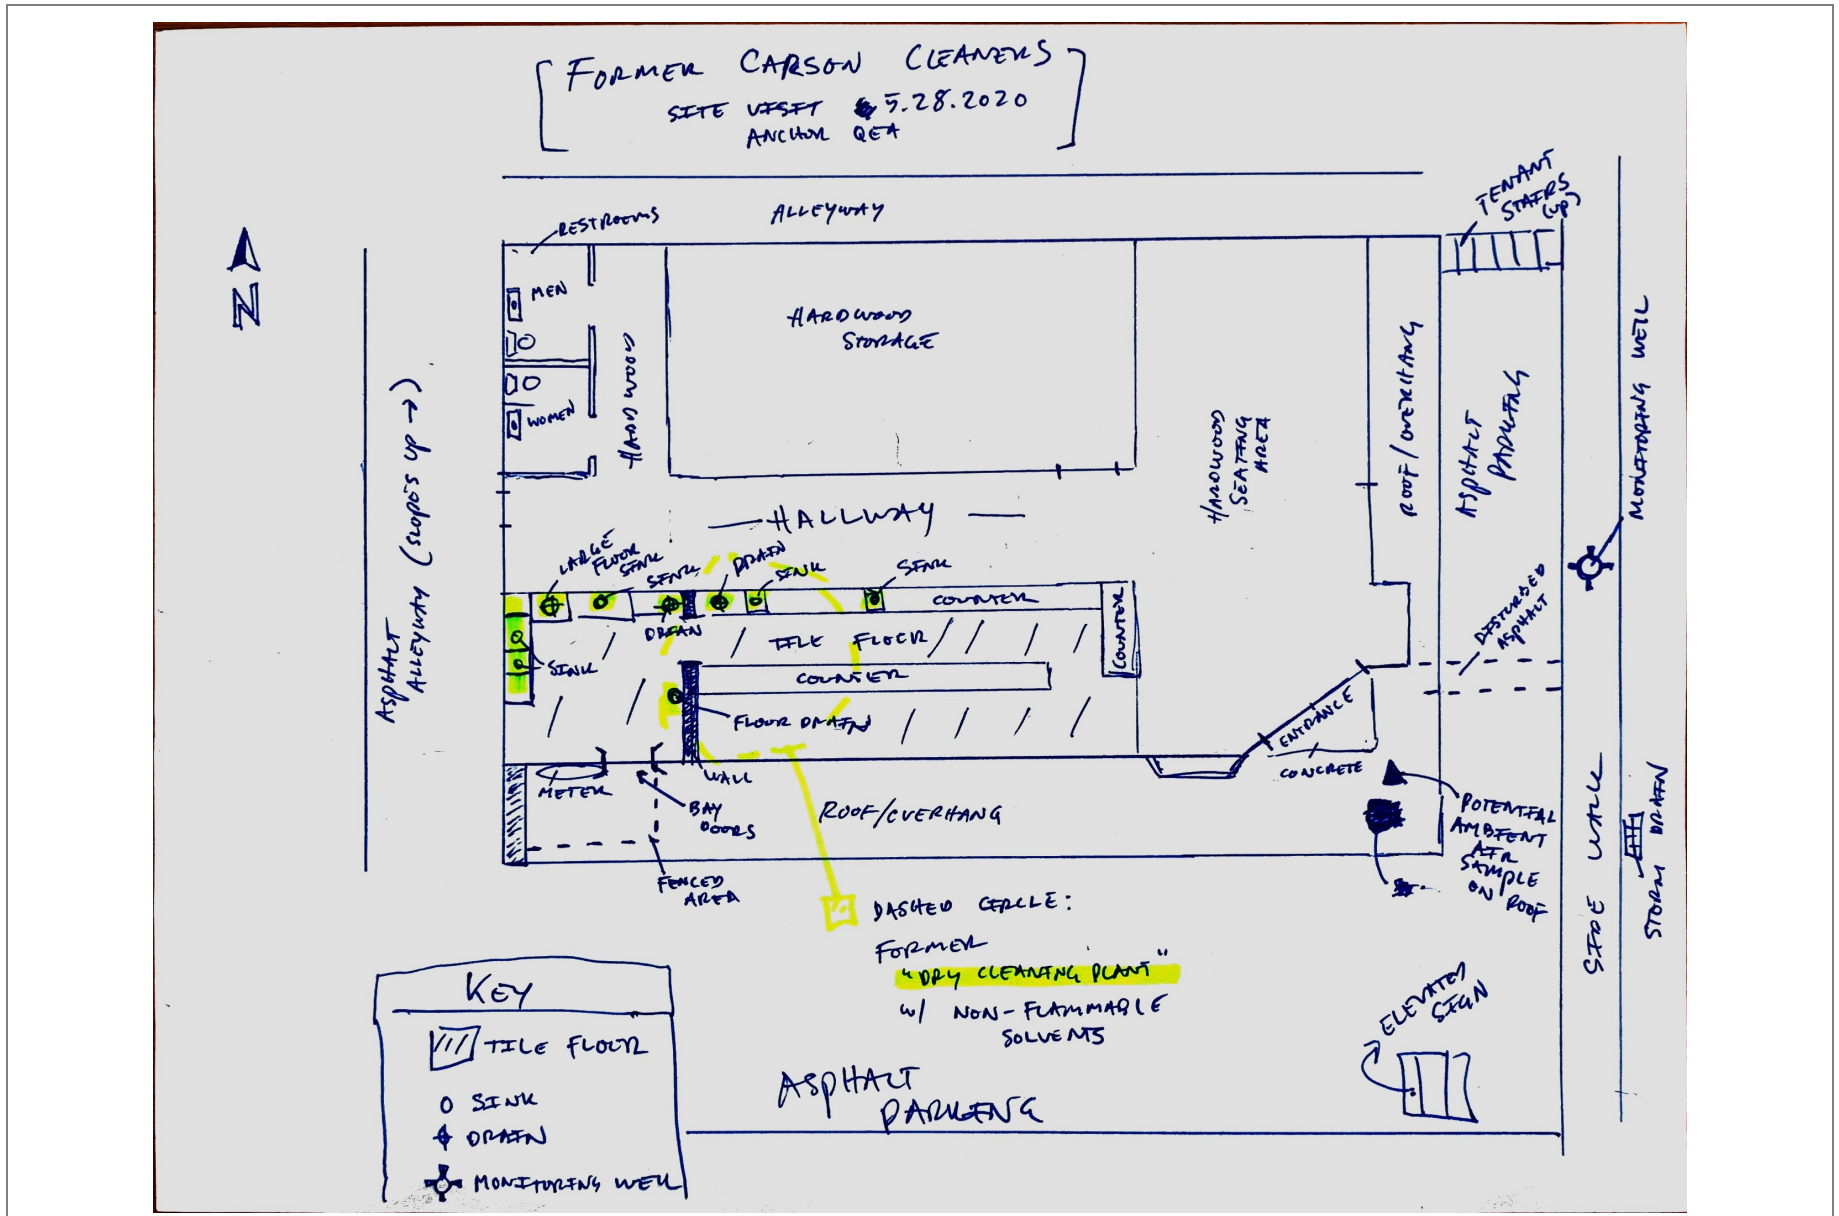 FORMER CARSON CLEANERS
SITE VISIT 5.28.2020
ANCHOR QEA
TENANT
STAIRS
(UP)
ALLEYWAY
RESTROOMS
N
MEN
WOMEN
HARDWOOD
HARDWOOD
STORAGE
HARDWOOD
SEATING
AREA
ROOF/OVERHANG
ASPHALT
PARKING
MONITORING WELL
ASPHALT
ALLEYWAY (SLOPES UP →)
HALLWAY
LARGE
FLOOR
SINK
SINK
DRAIN
SINK
SINK
COUNTER
COUNTER
DRIAN
TILE FLOOR
SINK
COUNTER
FLOOR DRAIN
DISTURBED
ASPHALT
ENTRANCE
CONCRETE
WALL
METER
BAY
DOORS
ROOF/OVERHANG
FENCED
AREA
POTENTIAL
AMBIENT
AIR
SAMPLE
ON ROOF
SIDE WALK
STORM DRAIN
DASHED CIRCLE:
FORMER
"DRY CLEANING PLANT"
W/ NON-FLAMMABLE
SOLVENTS
ELEVATED
SIGN
ASPHALT
PARKING
KEY
TILE FLOOR
SINK
DRAIN
MONITORING WELL